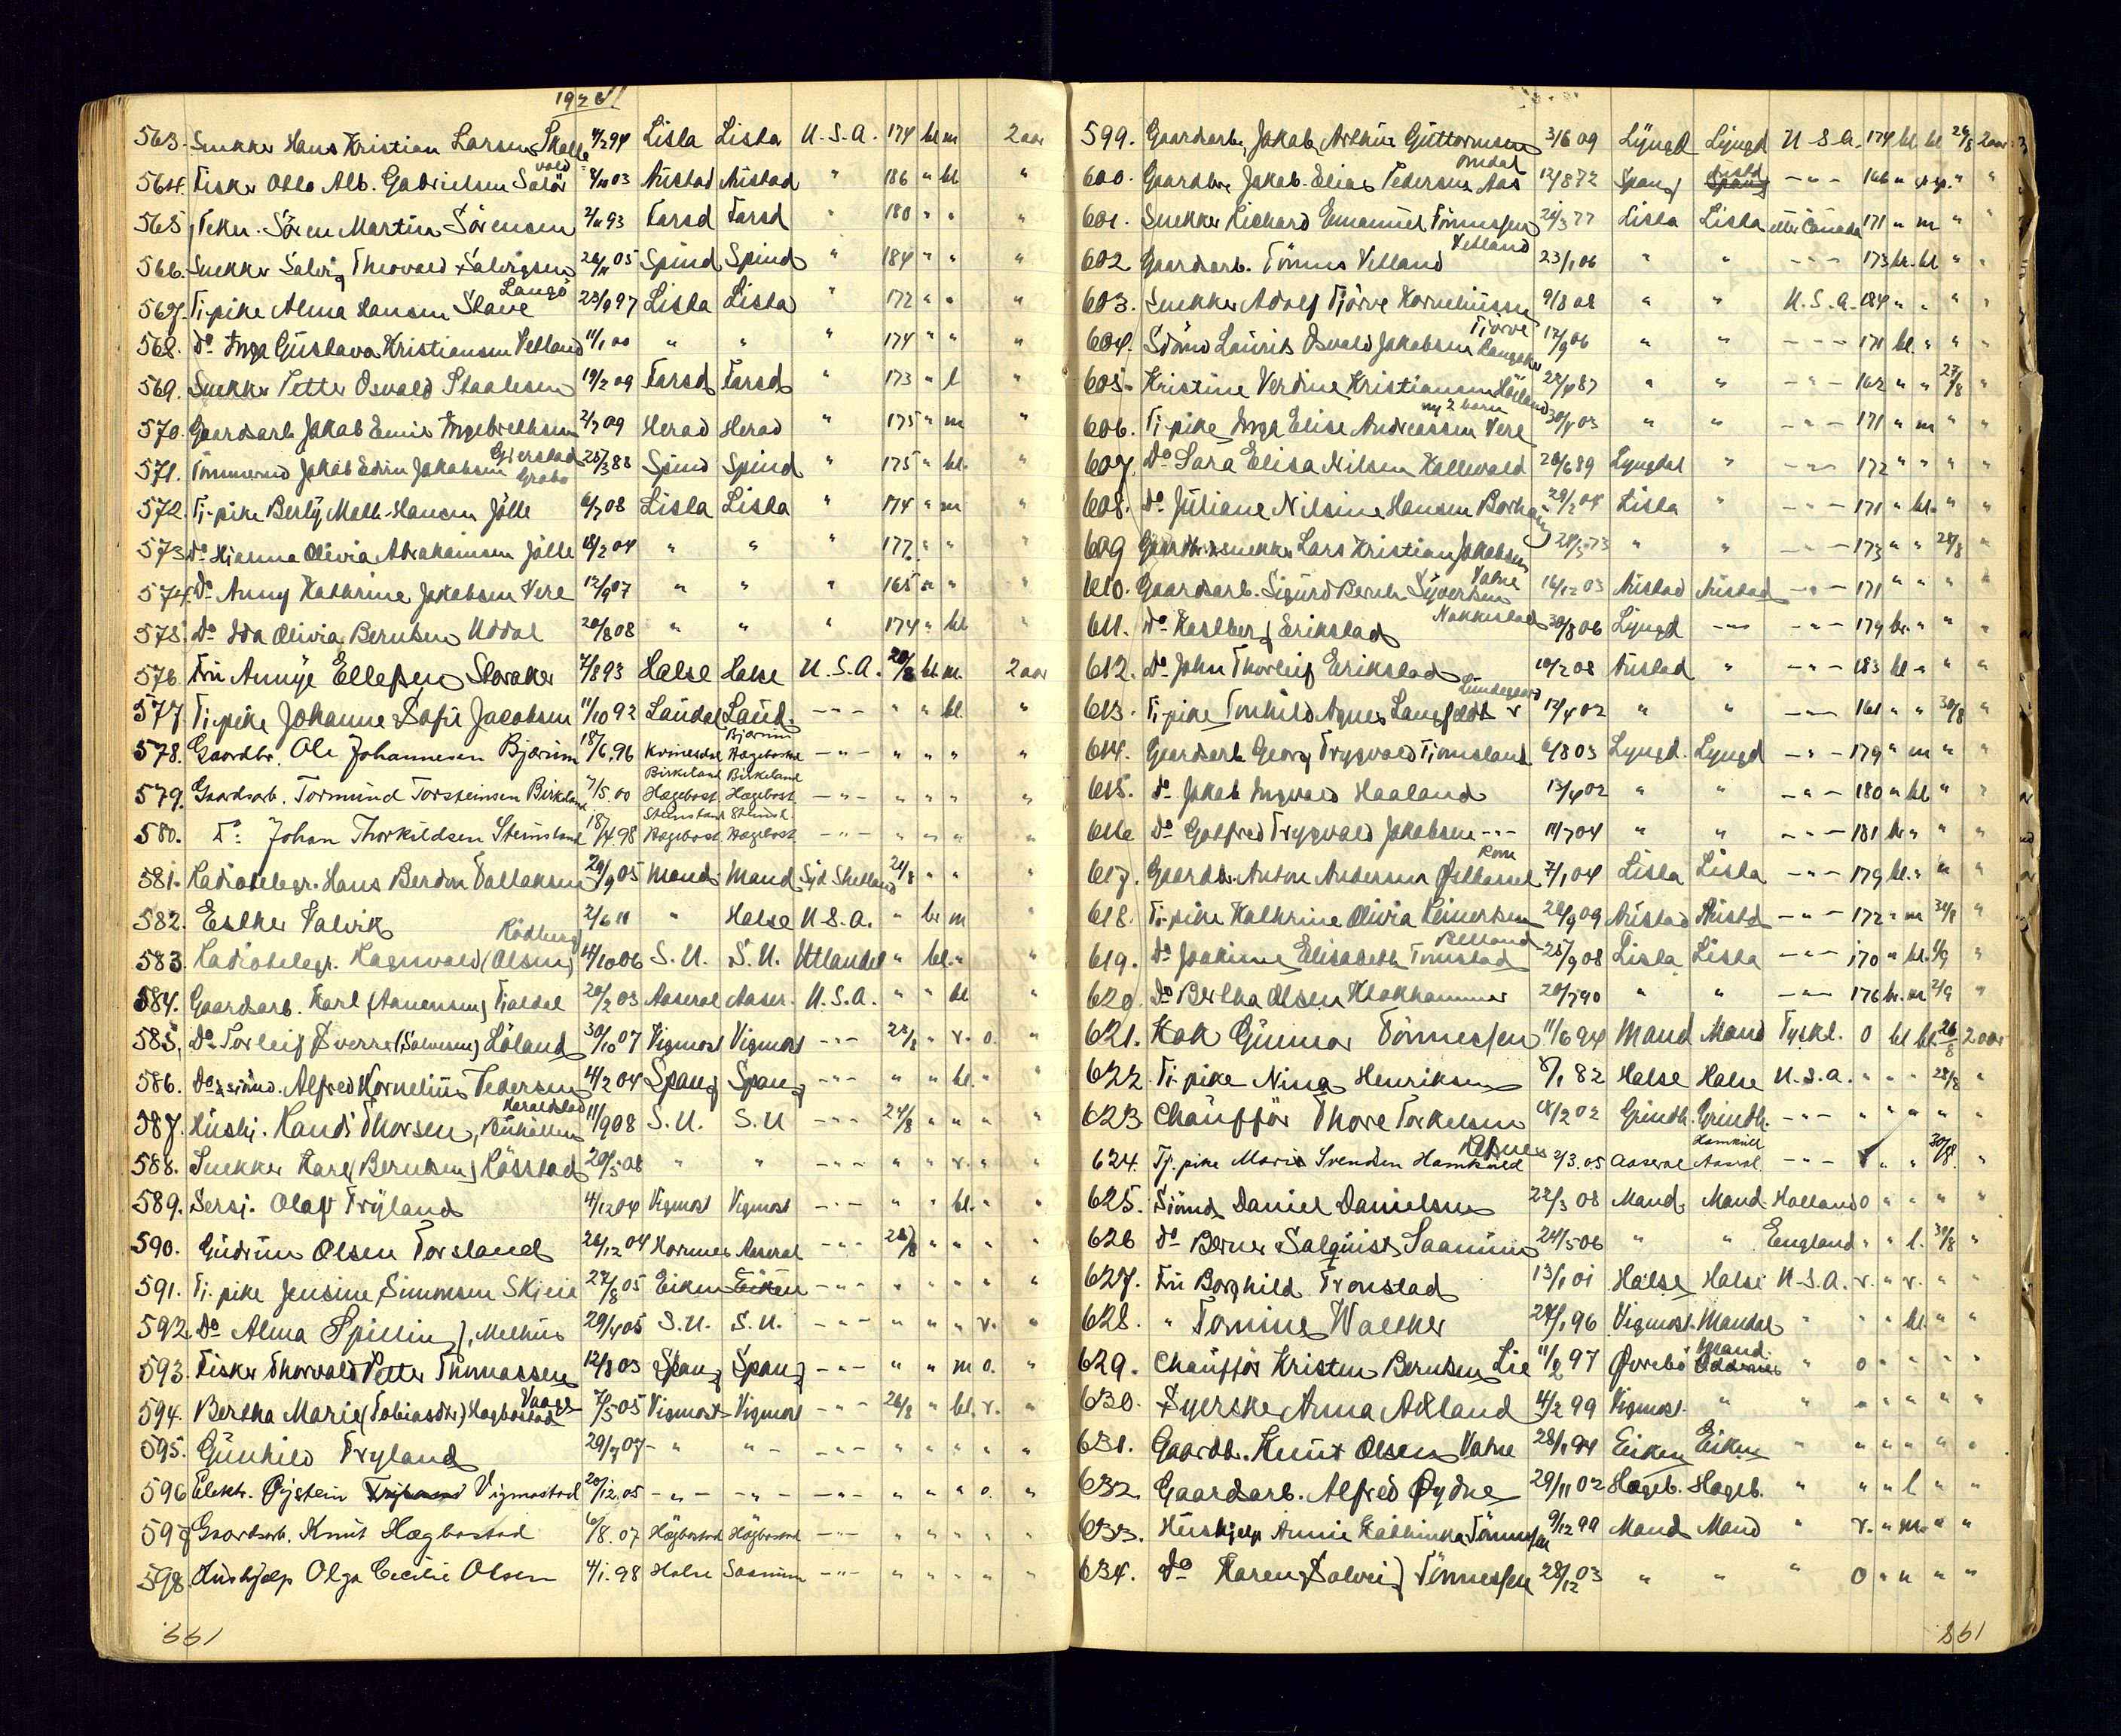 563. Snekker Hans Kristian Larsen Skolle 4/2 94 Lista Lista U.S.A. 174 bl m 2 aar
vold
564. Fisker Otto Alb. Gabrielsen 03 Austad Austad " 186 " bl
565. Søren Martin Sørensen 93 Farsd Farsd " 180 " " "
566. Snekker Salvig Theovald Salvigsen 26/11 05 Spind Spind " 184 " " "
Langø
567. Tj.pike Alma Hansen Stave 23/9 97 Lista Lista " 172 " " "
568. Do Inga Gustava Kristiansen Vetland 11/1 00 " " " 174 " " "
569. Snekker Petter Osvald Staalesen 19/2 09 Farsd Farsd " 173 " l "
570. Gaardsarb Jakob Emil Ingebrethsen 2/7 09 Herad Herad " 175 " m "
Gjerstad
571. Tømmermd Jakob Edvin Jakobsen 25/3 88 Spind Spind " 175 " bl. "
572. Tj.pike Berly Math. Hansen Jølle 6/7 08 Lista Lista " 174 " m "
573. Do Hjanna Olivia Abrahamsen Jølle 18/2 04 " " " 177 " " "
574. Do Anny Kathrine Jakobsen Vere 12/9 07 " " " 165 " " "
575. Do Ida Olivia Berntsen Uddal 20/8 08 " " " 174 " bl "
576. Fru Annye Ellefsen Storaker 7/8 93 Halse Halse U.S.A. 20/8 bl m. 2 aar
577. Tj.pike Johanne Sofie Jacobsen 11/10 92 Laudal Laud. -"- " " bl. "
Bjørum
578. Gaardbr. Ole Johannesen Bjørum 18/6.96 Kvinesdal Hægebostad -"- " " " "
Birkeland Birkeland
579. Gaardsarb. Tormund Torsteinsen Birkeland 7/5.00 Hægebost. Hægebost. -"- " " " "
Steinsland Steinsl.
580. Do: Johan Thorkildsen Steinsland 18/4.98 Hægebost. Hægebost. -"- " " " "
581. Radiotelegr. Hans Berdon Tallaksen 20/9 05 Mand. Mand Syd Shetland 21/8 " " "
582. Esther Valvik 2/6 11 " Halse U.S.A. " br m
Rødberg
583. Radiotelegr. Ragnvald (Olsen) 14/10 06 S.U. S.U. Utlandet " bl. " "
584. Gaardsarb. Karl (Aanensen) 20/2 03 Aaseral Aaser. U.S.A. " " bl "
585. Do Torleif Sverre (Salvesen) Høland 30/10 07 Vigmost Vigmost -"- 22/8 " v. o. "
586. Do & sjømd. Alfred Kornelius Pedersen 4/2 04 Spang Spang -"- " " bl. " "
Haraldstad
587. Hushj. Randi Thorsen, 11/9 08 S.U. S.U -"- 24/8 " " " "
588. Snekker Karl (Berntsen) Røsstad 20/5 08 " " -"- " " v. " "
589. Sersj. Olaf Fryland 4/12 04 Vigmost Vigmost -"- " " bl. " "
590. Gudrun Olsen Torsland 26/12 04 Hornnes Aaseral -"- 28/8 " " " "
591. Tj.pike Jensine Simonsen Skjeie 27/8 05 Eiken Eiken -"- " " " " "
592. Do Alma Spilling, Melhus 29/4 05 S.U. S.U. -"- " " " v. "
593. Fisker Thorvald Petter Thomassen 12/8 03 Spang Spang -"- " " m o. "
Vaage
594. Bertha Marie (Tobiasdtr) Hægbostad 7/5 05 Vigmost Vigmost -"- 26/8 " bl. v. "
595. Gunhild Fryland 29/7 07 -"- "- -"- " " " " "
596 Elektr. Øystein Fryland Vigmostad 20/12.05 -"- -"- -"- " " " o. "
597 Gaardsarb. Knut Hægbostad 6/8.07 Hægbostad Hægbostad -"- " " " " "
598. Hushjelp Olga Cecilie Olsen 4/1.98 Halse Saanum -"- " " " " "
331
599. Gaardarb, Jakob Arthur Guttormsen 3/6 09 Lyngd Lyngd U.S.A. 174 bl bl 24/8 2 aar
Omdal
600. Gaardbr. Jakob Elias Pedersen Aas 12/8 72 Spang Spang -"- 166 " sp. " "
601. Snekker Richard Emanuel Tønnessen 24/3 77 Lista Lista eller Canada 171 " m " "
Vetland
602. Gaardarb. Tønnes Vetland 23/1 06 " " -"- 173 br. bl " "
603. Snekker Adolf Tjørve Korneliussen 9/8 08 " " U.S.A. 184 " " " "
Tjørve
604. Sjømd Laurits Osvald Jakobsen 12/9 06 " " -"- 171 bl. " " "
605. Kristine Verdine Kristiansen Høiland 22/4 87 " " -"- 162 " " 27/8 "
og 2 barn
606. Tj.pike Inga Elise Andreassen Vere 30/4 03 " " -"- 171 " m " "
607. Do Sara Elisa Nilsen Kallevald 26/6 89 Lyngdal " -"- 172 " " " "
608. Do Juliane Nilsine Hansen Borhaug 29/2 04 Lista " -"- 171 " bl. " "
609 Gaardbr & snekker Lars Kristian Jakobsen 28/3 73 " " -"- 173 " " 28/8 "
Vatne
610. Gaardsarb. Sigurd Bernh Syvertsen 16/12 03 Austad Austad -"- 171 " " " "
Nakkestad
611. Do Karlberg Erikstad 30/8 06 Lyngd -"- -"- 179 br. " " "
612. Do John Thorleif Erikstad 10/2 08 Austad " -"- 183 bl " " "
Lundegaard
613. Tj.pike Tonhild Agnes Langfeldt 17/4 02 " " -"- 161 " " 30/8 "
614. Gaardarb Georg Trygvald Tjomsland 6/8 03 Lyngd. Lyngd -"- 179 " m " "
615. Do Jakob Ingvald Haaland 13/4 02 " " -"- 180 " bl " "
616 Do Gotfred Trygvald Jakobsen -"- 11/7 04 " " -"- 181 br " " "
Rom
617. Gaardb. Anton Andersen Østhassel 7/1 04 Lista Lista -"- 179 bl. " " "
618. Tj.pike Kathrine Olivia Reinertsen 20/9 09 Austad Austd -"- 172 " m 31/8 "
Belland
619. Do Joakime Elisabeth Tomstad 25/9 08 Lista Lista -"- 170 " bl. 1/9 "
620. Do Bertha Olsen Klokhammer 20/7 90 " " -"- 176 br. m 2/9 "
621. Kok Gunnar Tønnessen 11/6 94 Mand Mand Tyskl. 0 bl bl. 26/8 2 aar
622. Tj.pike Nina Henriksen 8/1 82 Halse Halse U.S.A. " " " 28/8 "
623. Chauffør Thore Torkelsen 18/2 02 Grindh. Grindh. -"- " " " " "
Homkild
624. Tj.pike Marie Svendsen Homkild 2/3.05 Aaseral Aaseral. -"- " " 30/8. "
625. Sjømd Daniel Danielsen 22/3 08 Mand. Mand Holland 0 " " " "
626 Do Berner Salquist Saanum 24/5 06 " " England " " l. 30/8 "
627. Fru Borghild Tronstad 13/1 01 Halse Halse U.S.A. v. " v. " "
628. " Tomine Walther 28/1 96 Vigmost. Mandal " " bl. " "
Mand.
629. Chauffør Kristen Berntsen Lie 11/2 97 Øvrebø " 0 " " " "
630. Syerske Anna Aaland 4/2 99 Vigmost. " " " " " " "
631. Gaardb. Knut Olsen Vatne 28/1 94 Eiken Eiken " " " " " "
632. Gaardsarb. Alfred Øydne 29/11 02 Hægeb. Hægeb. " " " l " "
633. Hushjelp Annie Kathinka Tønnessen 9/12 99 Mand Mand " v. " m. " "
634. Do Karen (Solvei) Tønnessen 28/12 03 " " " 0 " " " "